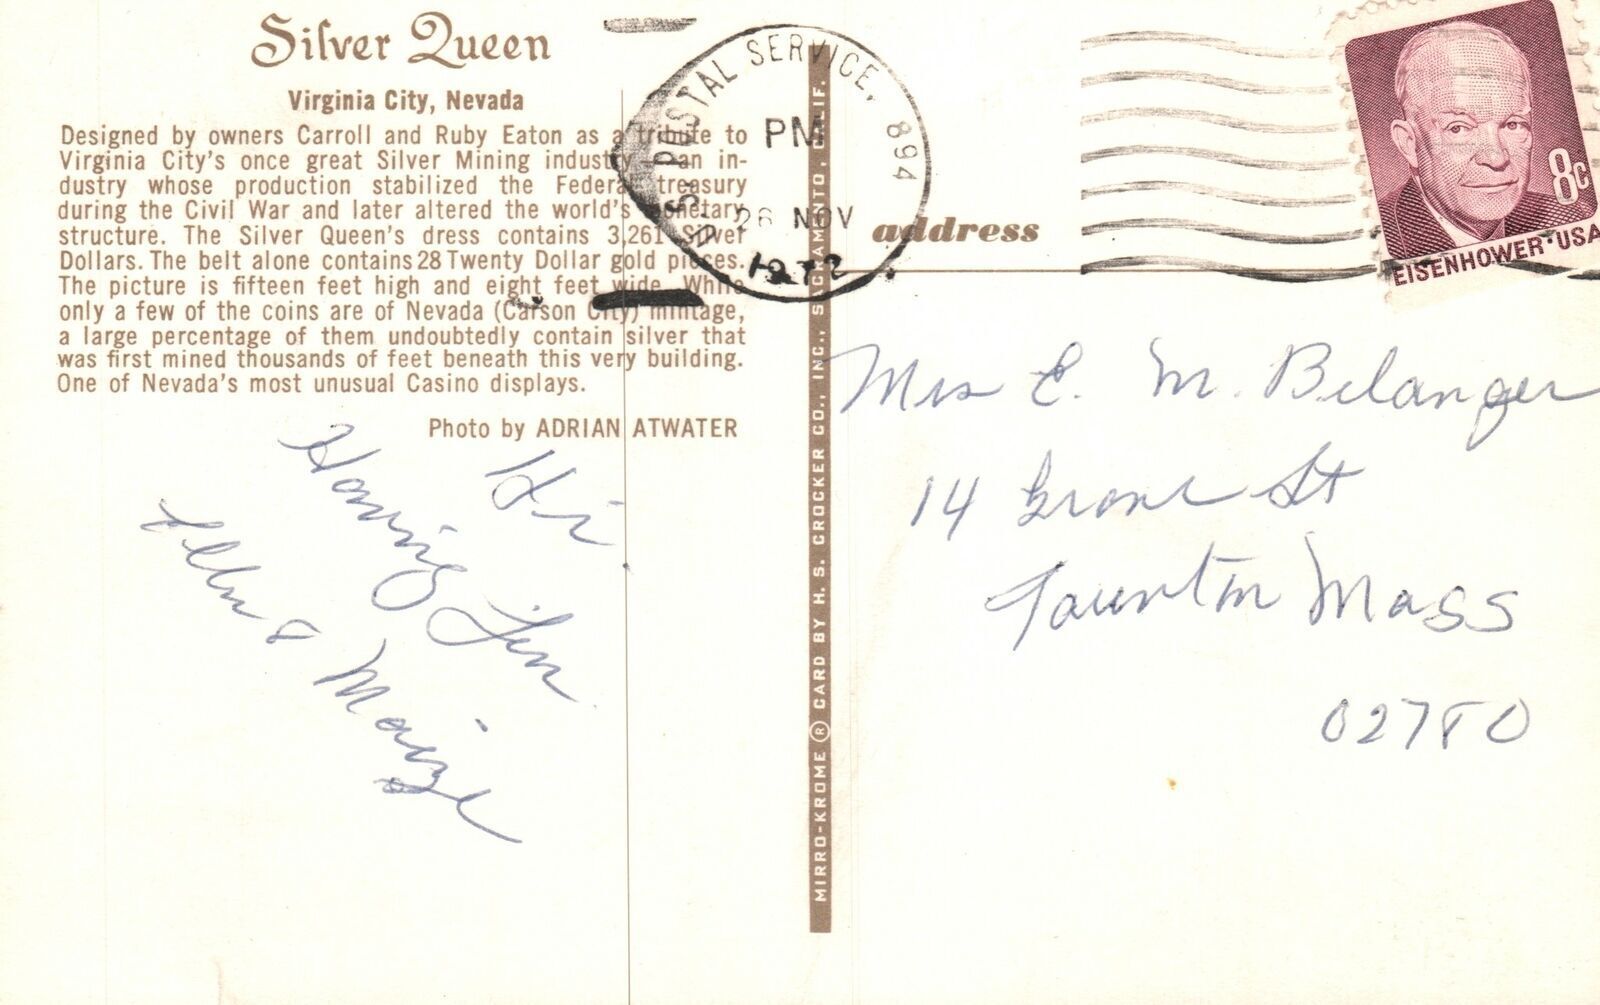 Silver Queen
Virginia City, Nevada
Designed by owners Carroll and Ruby Eaton as a tribute to
Virginia City's once great Silver Mining industry - an in-
dustry whose production stabilized the Federal treasury
during the Civil War and later altered the world's monetary
structure. The Silver Queen's dress contains 3,261 Silver
Dollars. The belt alone contains 28 Twenty Dollar gold pieces.
The picture is fifteen feet high and eight feet wide. While
only a few of the coins are of Nevada (Carson City) mintage,
a large percentage of them undoubtedly contain silver that
was first mined thousands of feet beneath this very building.
One of Nevada's most unusual Casino displays.
Photo by ADRIAN ATWATER
Hi
Having Fun
&
MIRRO-KROME ® CARD BY H. S. CROCKER CO., INC., SACRAMENTO, CALIF.
U.S. POSTAL SERVICE, 894
PM
26 NOV
1972
8c
EISENHOWER·USA
address
Mrs E. M. Belanger
14 St
Taunton Mass
02780